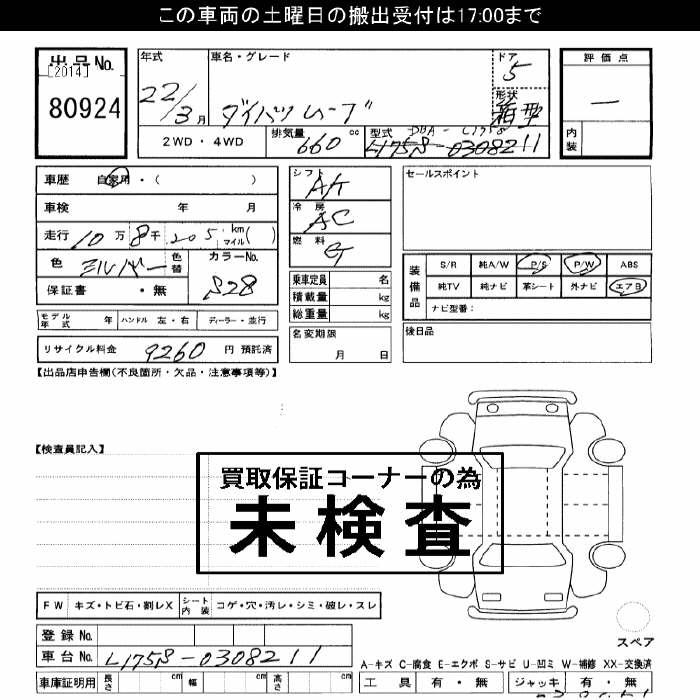 この車両の土曜日の搬出受付は17:00まで
出品No.
[2014]
80924
年式
22/3月
車名・グレード
ダイハツムーブ
ドア
5
形状
箱型
評価点
ー
内装
2WD・4WD
排気量
660 cc
型式
DBA-L175S
L175S-0308211
車歴 自家用・( )
車検 年 月
走行 10万8千205 km マイル( )
色 シルバー 色替 カラーNo. S28
保証書 ・無
シフト
AT
冷房
AC
燃料
G
セールスポイント
乗車定員 名
積載量 kg
総重量 kg
装備品
S/R 純A/W P/S P/W ABS
純TV 純ナビ 革シート 外ナビ エアB
ナビ型番:
モデル年式 年 ハンドル 左・右 ディーラー・並行
名変期限
月 日
後日品
リサイクル料金 9260 円 預託済
【出品店申告欄(不良箇所・欠品・注意事項等)】
【検査員記入】
買取保証コーナーの為
未検査
FW キズ・トビ石・割レX シート内装 コゲ・穴・汚レ・シミ・破レ・スレ
スペア
登録No.
車台No. L175S-0308211
A-キズ C-腐食 E-エクボ S-サビ U-凹ミ W-補修 XX-交換済
車庫証明用 長さ cm 幅 cm 高さ cm
工具 有・無 ジャッキ 有・無